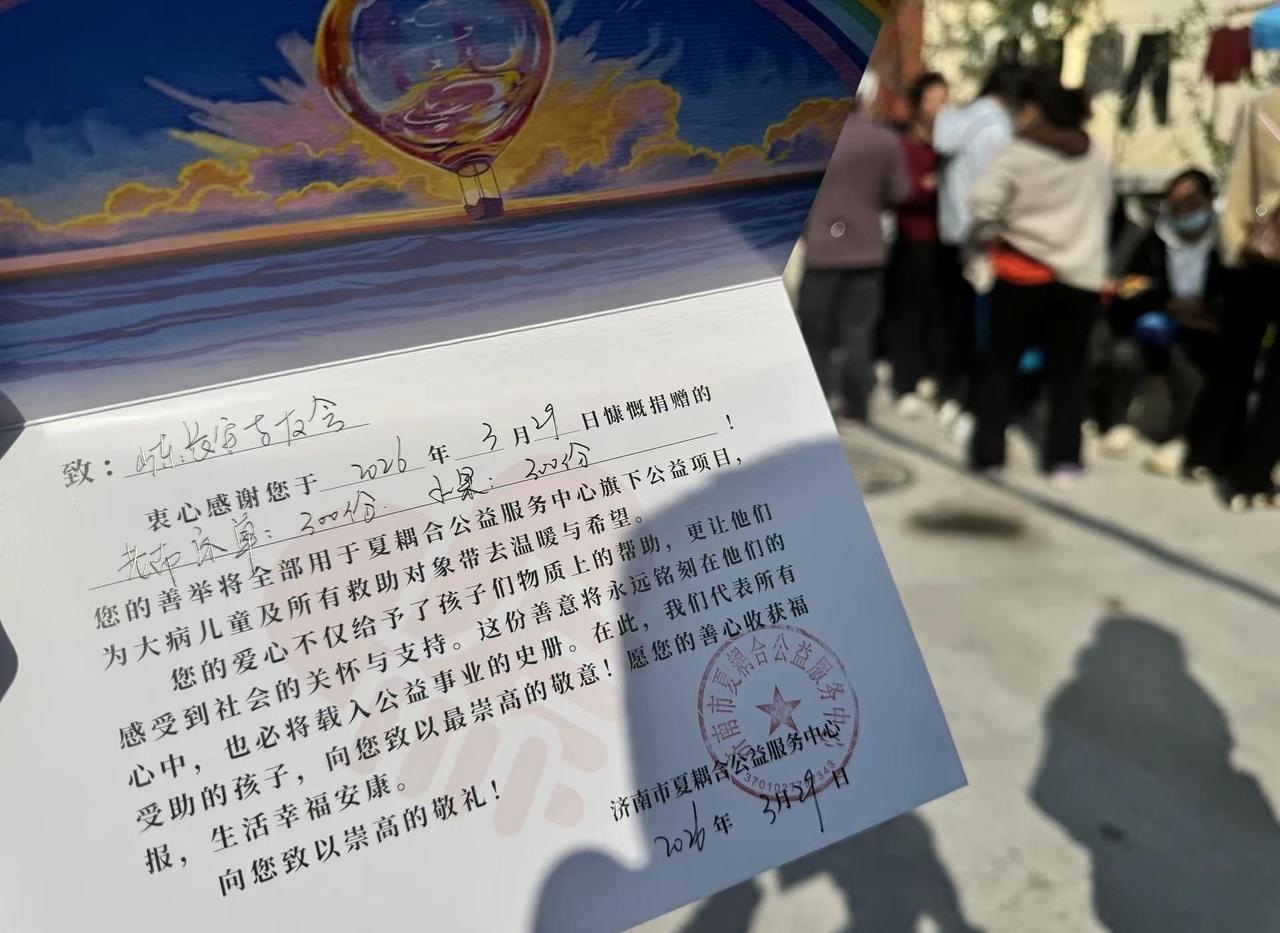 致：山东长安吉友会
衷心感谢您于2026年3月29日慷慨捐赠的
老布床单：300份. 水果：300份！
您的善举将全部用于夏耦合公益服务中心旗下公益项目，
为大病儿童及所有救助对象带去温暖与希望。
您的爱心不仅给予了孩子们物质上的帮助，更让他们
感受到社会的关怀与支持。这份善意将永远铭刻在他们的
心中，也必将载入公益事业的史册。在此，我们代表所有
受助的孩子，向您致以最崇高的敬意！愿您的善心收获福
报，生活幸福安康。
向您致以崇高的敬礼！
济南市夏耦合公益服务中心
济南市夏耦合公益服务中心
2026年3月29日